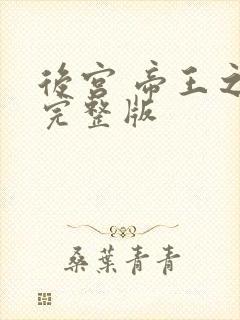 後宮 帝王之
完整版
桑葉青青